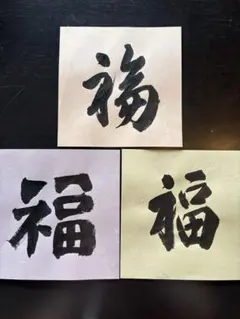 福
福
福